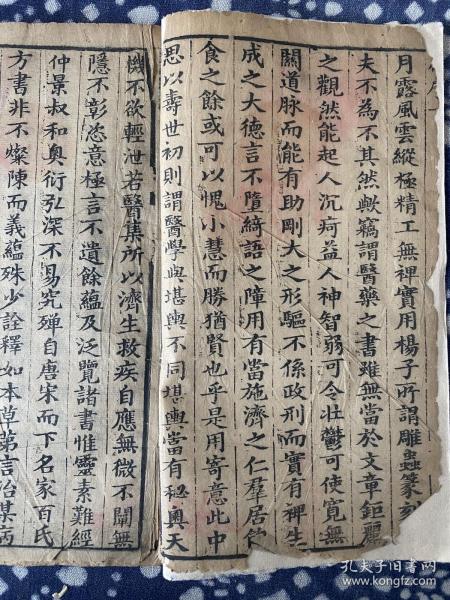 月露風雲縱極精工無裨實用楊子所謂雕蟲篆刻
夫不為不其然歟竊謂醫藥之書雖無當於文章鉅麗
之觀然能起人沉疴益人神智弱可令壯鬱可使寬無
關道脉而能有助剛大之形軀不係政刑而實有裨生
成之大德言不墮綺語之障用有當施濟之仁羣居飽
食之餘或可以愧小慧而勝猶賢也乎是用寄意此中
思以壽世初則謂醫學與堪輿不同堪輿當有秘奥天
機不欲輕泄若醫集所以濟生救疾自應無微不闡無
隱不彰恣意極言不遺餘蘊及泛覽諸書惟靈素難經
仲景叔和奥衍弘深不易究殫自唐宋而下名家百氏
方書非不燦陳而義蘊殊少詮釋如本草第言治某病
孔夫子旧书网